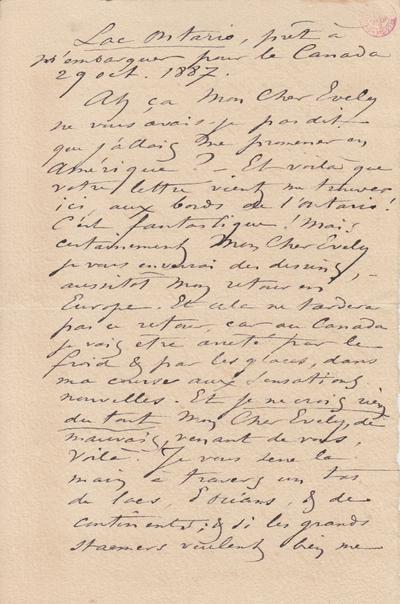 Lac Ontario, prêt à
m'embarquer pour le Canada
29 oct. 1887.
Ah ça Mon Cher Evely
ne vous avais-je pas dit
que j'allais me promener en
Amérique ? – Et voilà que
votre lettre vient me trouver
ici aux bords de l'Ontario !
C'est fantastique ! Mais
certainement Mon Cher Evely
je vous enverrai des dessins, –
aussitôt mon retour en
Europe. Et cela ne tardera
pas ce retour, car au Canada
je vais etre arreté par le
froid & par les glaces, dans
ma course aux sensations
nouvelles. Et je ne crois rien
du tout Mon Cher Evely, de
mauvais, venant de vous,
voilà. Je vous serre la
main à travers un tas
de lacs, d'océans, & de
continents ; & si les grands
steamers veulent bien me